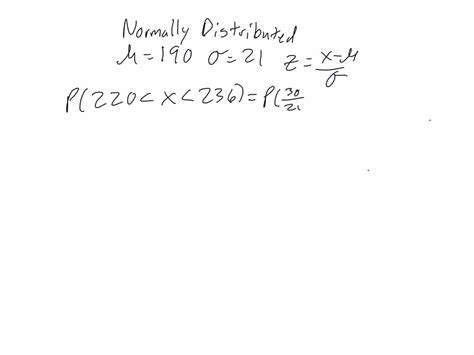 Normally Distributed
μ=190 σ=21 z=x-μ/σ
P(220<x<236)=P(30/21